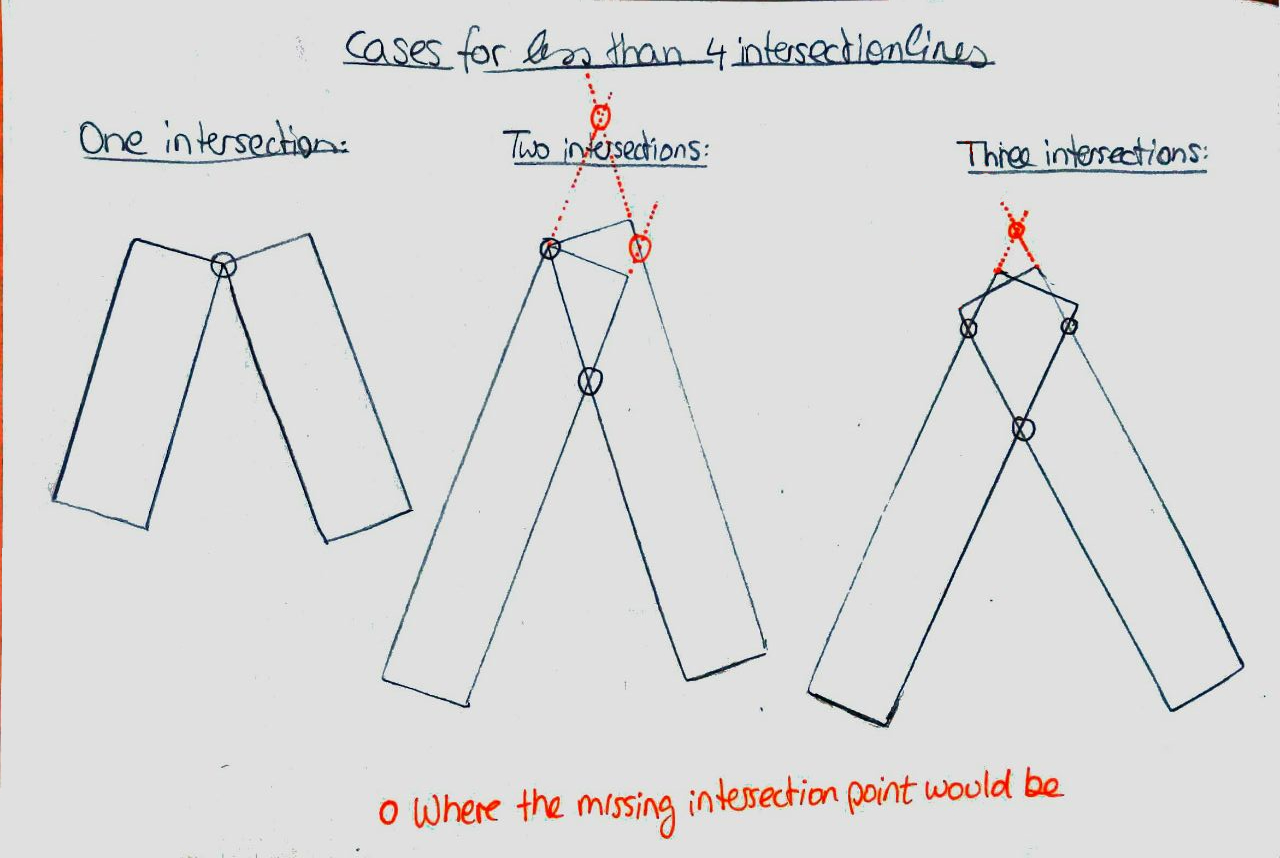 Cases for less than 4 intersectionlines
One intersection:
Two intersections:
Three intersections:
O Where the missing intersection point would be